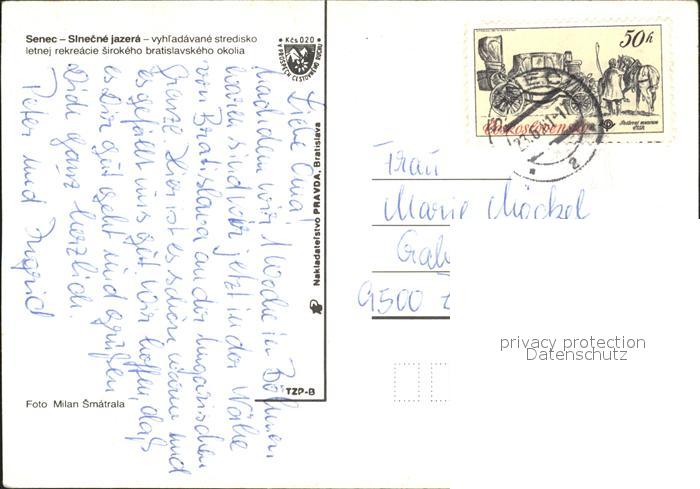 Senec – Slnečné jazerá – vyhľadávané stredisko
letnej rekreácie širokého bratislavského okolia
Kčs 0,20
Liebe Oma!
Nachdem wir 1 Woche in Böhmen
waren sind wir jetzt in der Nähe
von Bratislava an der ungarischen
Grenze. Hier ist es schön warm und
es gefällt uns gut. Wir hoffen, daß
es Dir gut geht und grüßen
Dich ganz herzlich.
Peter und Ingrid
Nakladateľstvo PRAVDA, Bratislava
TZP-B
Foto Milan Šmátrala
50h
Československo
Poštovní muzeum
SENEC
2
Frau
Marie Möckel
9500
privacy protection
Datenschutz